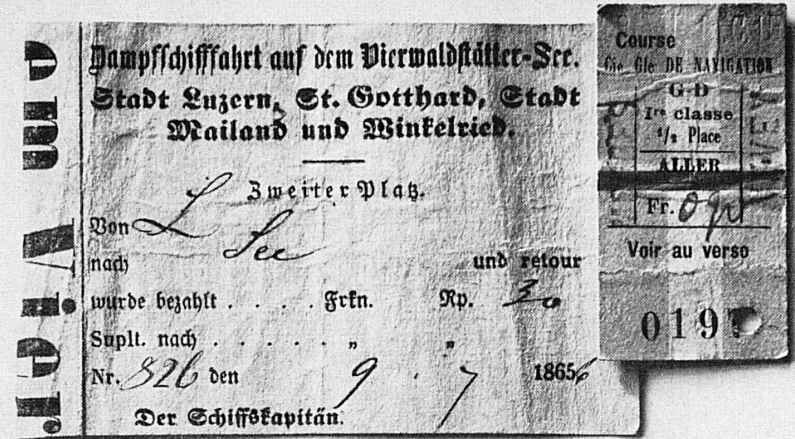 em Vier
Dampfschifffahrt auf dem Vierwaldstätter-See.
Stadt Luzern, St. Gotthard, Stadt
Mailand und Winkelried.
Zweiter Platz.
Von L
nach See und retour
wurde bezahlt . . . . Frkn. Rp. 30
Suplt. nach . . . . . „ „
Nr. 826 den 9 . 7 1865
Der Schiffskapitän.
Course
Cie Gle DE NAVIGATION
G-D
Ire classe
1/2 Place
ALLER
Fr.
Voir au verso
019